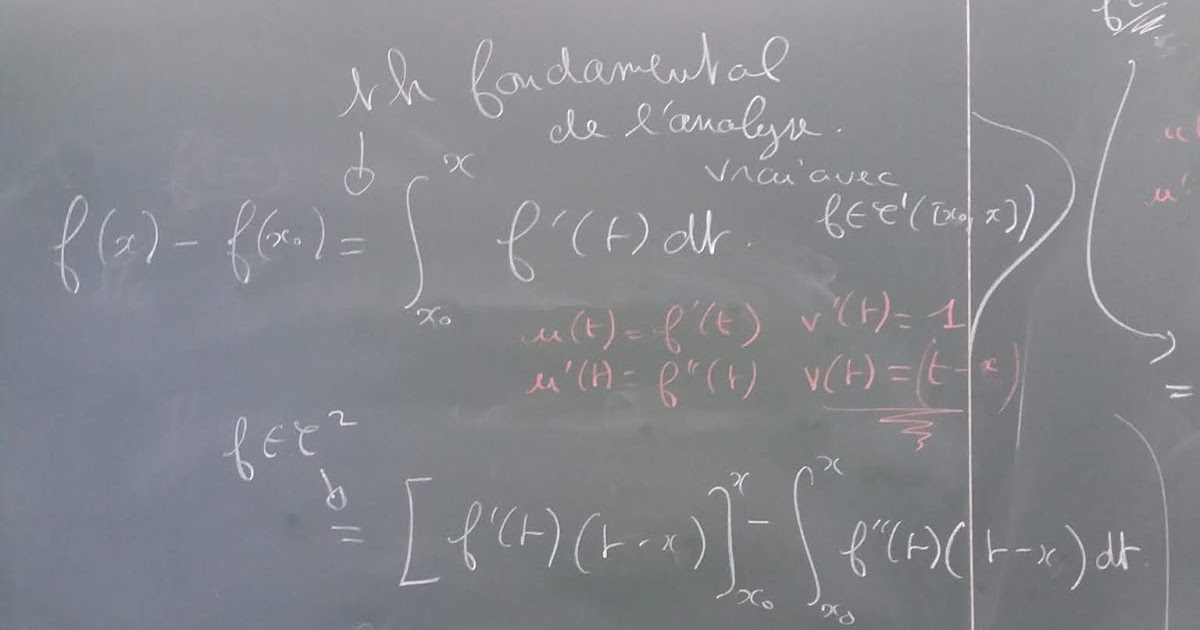 th fondamental
de l'analyse.
vrai avec
f∈C¹([x₀,x])
f(x) - f(x₀) = ∫_{x₀}^{x} f'(t) dt.
u(t) = f'(t) v'(t) = 1
u'(t) = f''(t) v(t) = (t-x)
f∈C²
= [f'(t)(t-x)]_{x₀}^{x} - ∫_{x₀}^{x} f''(t)(t-x) dt
u'
=